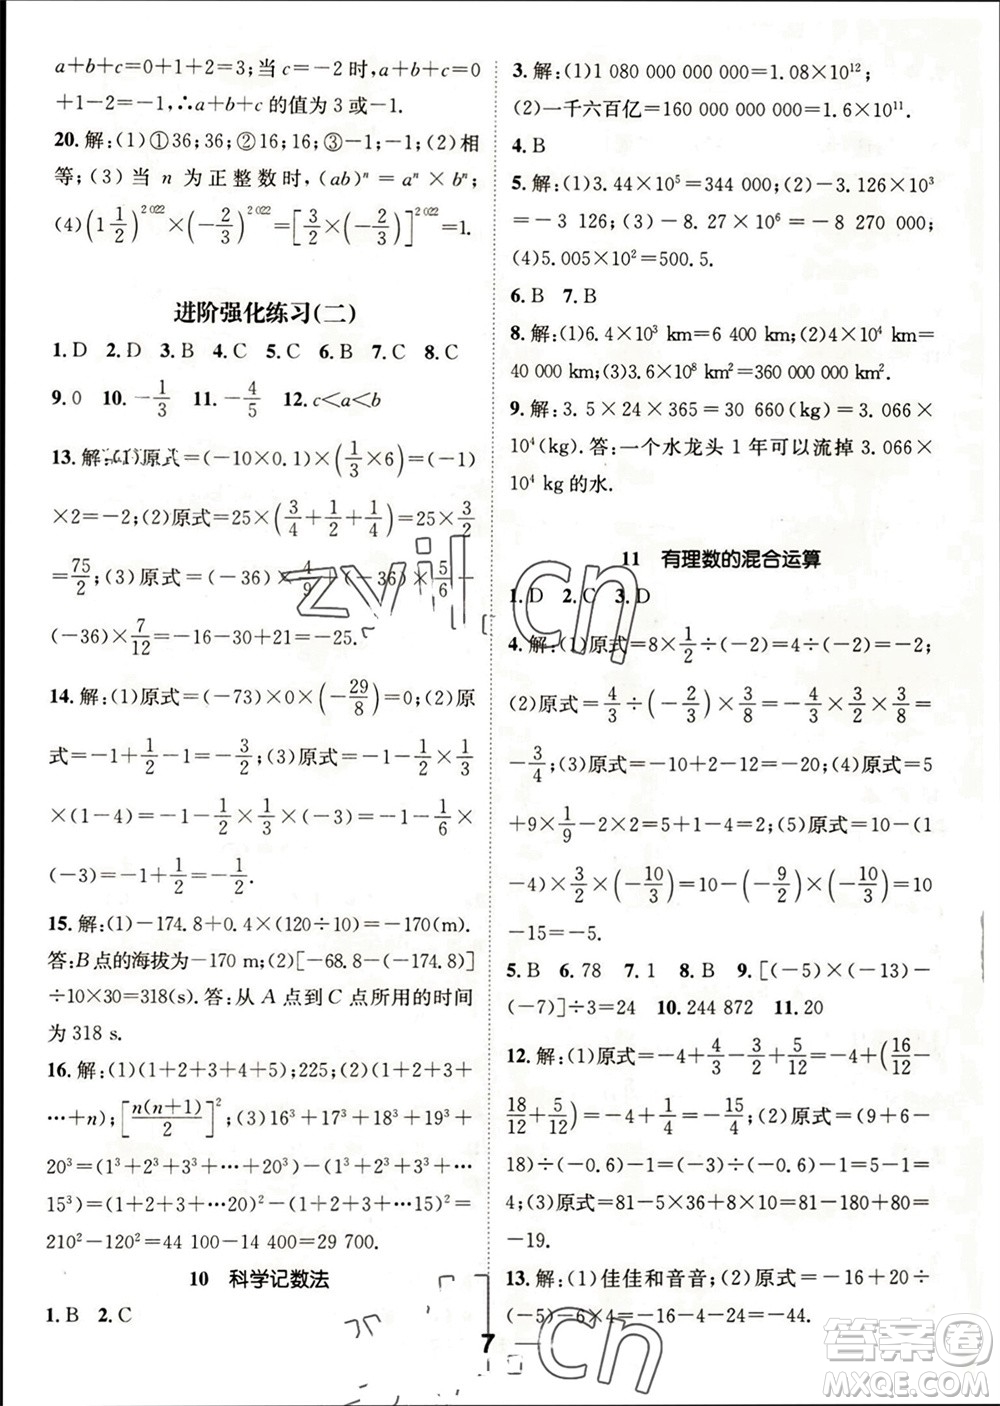 a+b+c=0+1+2=3;当 c=-2 时,a+b+c=0
+1-2=-1,∴a+b+c 的值为 3 或-1.
20.解:(1)①36;36;②16;16;③-1;-1;(2)相
等;(3)当 n 为正整数时,(ab)ⁿ=aⁿ×bⁿ;
(4)(1 1/2)²⁰²²×(-2/3)²⁰²²=[3/2×(-2/3)]²⁰²²=1.
进阶强化练习(二)
1.D 2.D 3.B 4.C 5.C 6.B 7.C 8.C
9.0 10.-1/3 11.-4/5 12.c<a<b
13.解:(1)原式=(-10×0.1)×(1/3×6)=(-1)
×2=-2;(2)原式=25×(3/4+1/2+1/4)=25×3/2
=75/2;(3)原式=(-36)×4/9-(-36)×5/6-
(-36)×7/12=-16-30+21=-25.
14.解:(1)原式=(-73)×0×(-29/8)=0;(2)原
式=-1+1/2-1=-3/2;(3)原式=-1-1/2×1/3
×(1-4)=-1-1/2×1/3×(-3)=-1-1/6×
(-3)=-1+1/2=-1/2.
15.解:(1)-174.8+0.4×(120÷10)=-170(m).
答:B点的海拔为-170 m;(2)[-68.8-(-174.8)]
÷10×30=318(s).答:从 A 点到 C 点所用的时间
为 318 s.
16.解:(1)(1+2+3+4+5);225;(2)(1+2+3+
…+n);[n(n+1)/2]²;(3)16³+17³+18³+19³+
20³=(1³+2³+3³+…+20³)-(1³+2³+3³+…
15³)=(1+2+3+…20)²-(1+2+3+…15)²=
210²-120²=44 100-14 400=29 700.
10 科学记数法
1.B 2.C
3.解:(1)1 080 000 000 000=1.08×10¹²;
(2)一千六百亿=160 000 000 000=1.6×10¹¹.
4.B
5.解:(1)3.44×10⁵=344 000;(2)-3.126×10³
=-3 126;(3)-8.27×10⁶=-8 270 000;
(4)5.005×10²=500.5.
6.B 7.B
8.解:(1)6.4×10³ km=6 400 km;(2)4×10⁴ km=
40 000 km;(3)3.6×10⁸ km²=360 000 000 km².
9.解:3.5×24×365=30 660(kg)=3.066×
10⁴(kg).答:一个水龙头 1 年可以流掉 3.066×
10⁴ kg的水.
11 有理数的混合运算
1.D 2.C 3.D
4.解:(1)原式=8×1/2÷(-2)=4÷(-2)=-2;
(2)原式=4/3÷(-2/3)×3/8=4/3×(-3/2)×3/8=
-3/4;(3)原式=-10+2-12=-20;(4)原式=5
+9×1/9-2×2=5+1-4=2;(5)原式=10-(1
-4)×3/2×(-10/3)=10-(-9/2)×(-10/3)=10
-15=-5.
5.B 6.78 7.1 8.B 9.[(-5)×(-13)-
(-7)]÷3=24 10.244 872 11.20
12.解:(1)原式=-4+4/3-3/2+5/12=-4+(16/12-
18/12+5/12)=-4+1/4=-15/4;(2)原式=(9+6-
18)÷(-0.6)-1=(-3)÷(-0.6)-1=5-1=
4;(3)原式=81-5×36+8×10=81-180+80=
-19.
13.解:(1)佳佳和音音;(2)原式=-16+20÷
(-5)-6×4=-16-4-24=-44.
7
zyjl.cn
答案圈
MXQE.COM